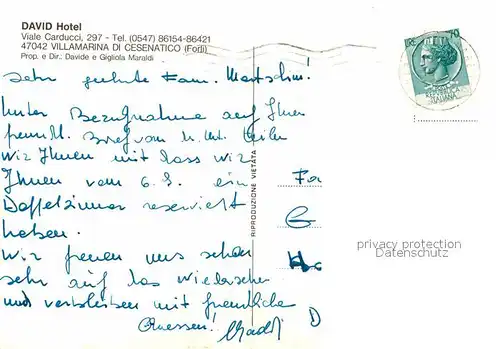 DAVID Hotel
Viale Carducci, 297 - Tel. (0547) 86154-86421
47042 VILLAMARINA DI CESENATICO (Forlì)
Prop. e Dir.: Davide e Gigliola Maraldi
LIRE 70
REPUBBLICA
ITALIANA
Sehr geehrte Fam.
Unter Bezugnahme auf Ihren
Brief vom
wir Ihnen mit dass wir
Ihnen vom 6.8. ein
Doppelzimmer reserviert
haben.
Wir freuen uns schon
sehr auf das Wiedersehen
und verbleiben mit freundliche
Gruessen!
RIPRODUZIONE VIETATA
Fa
G
D
privacy protection
Datenschutz